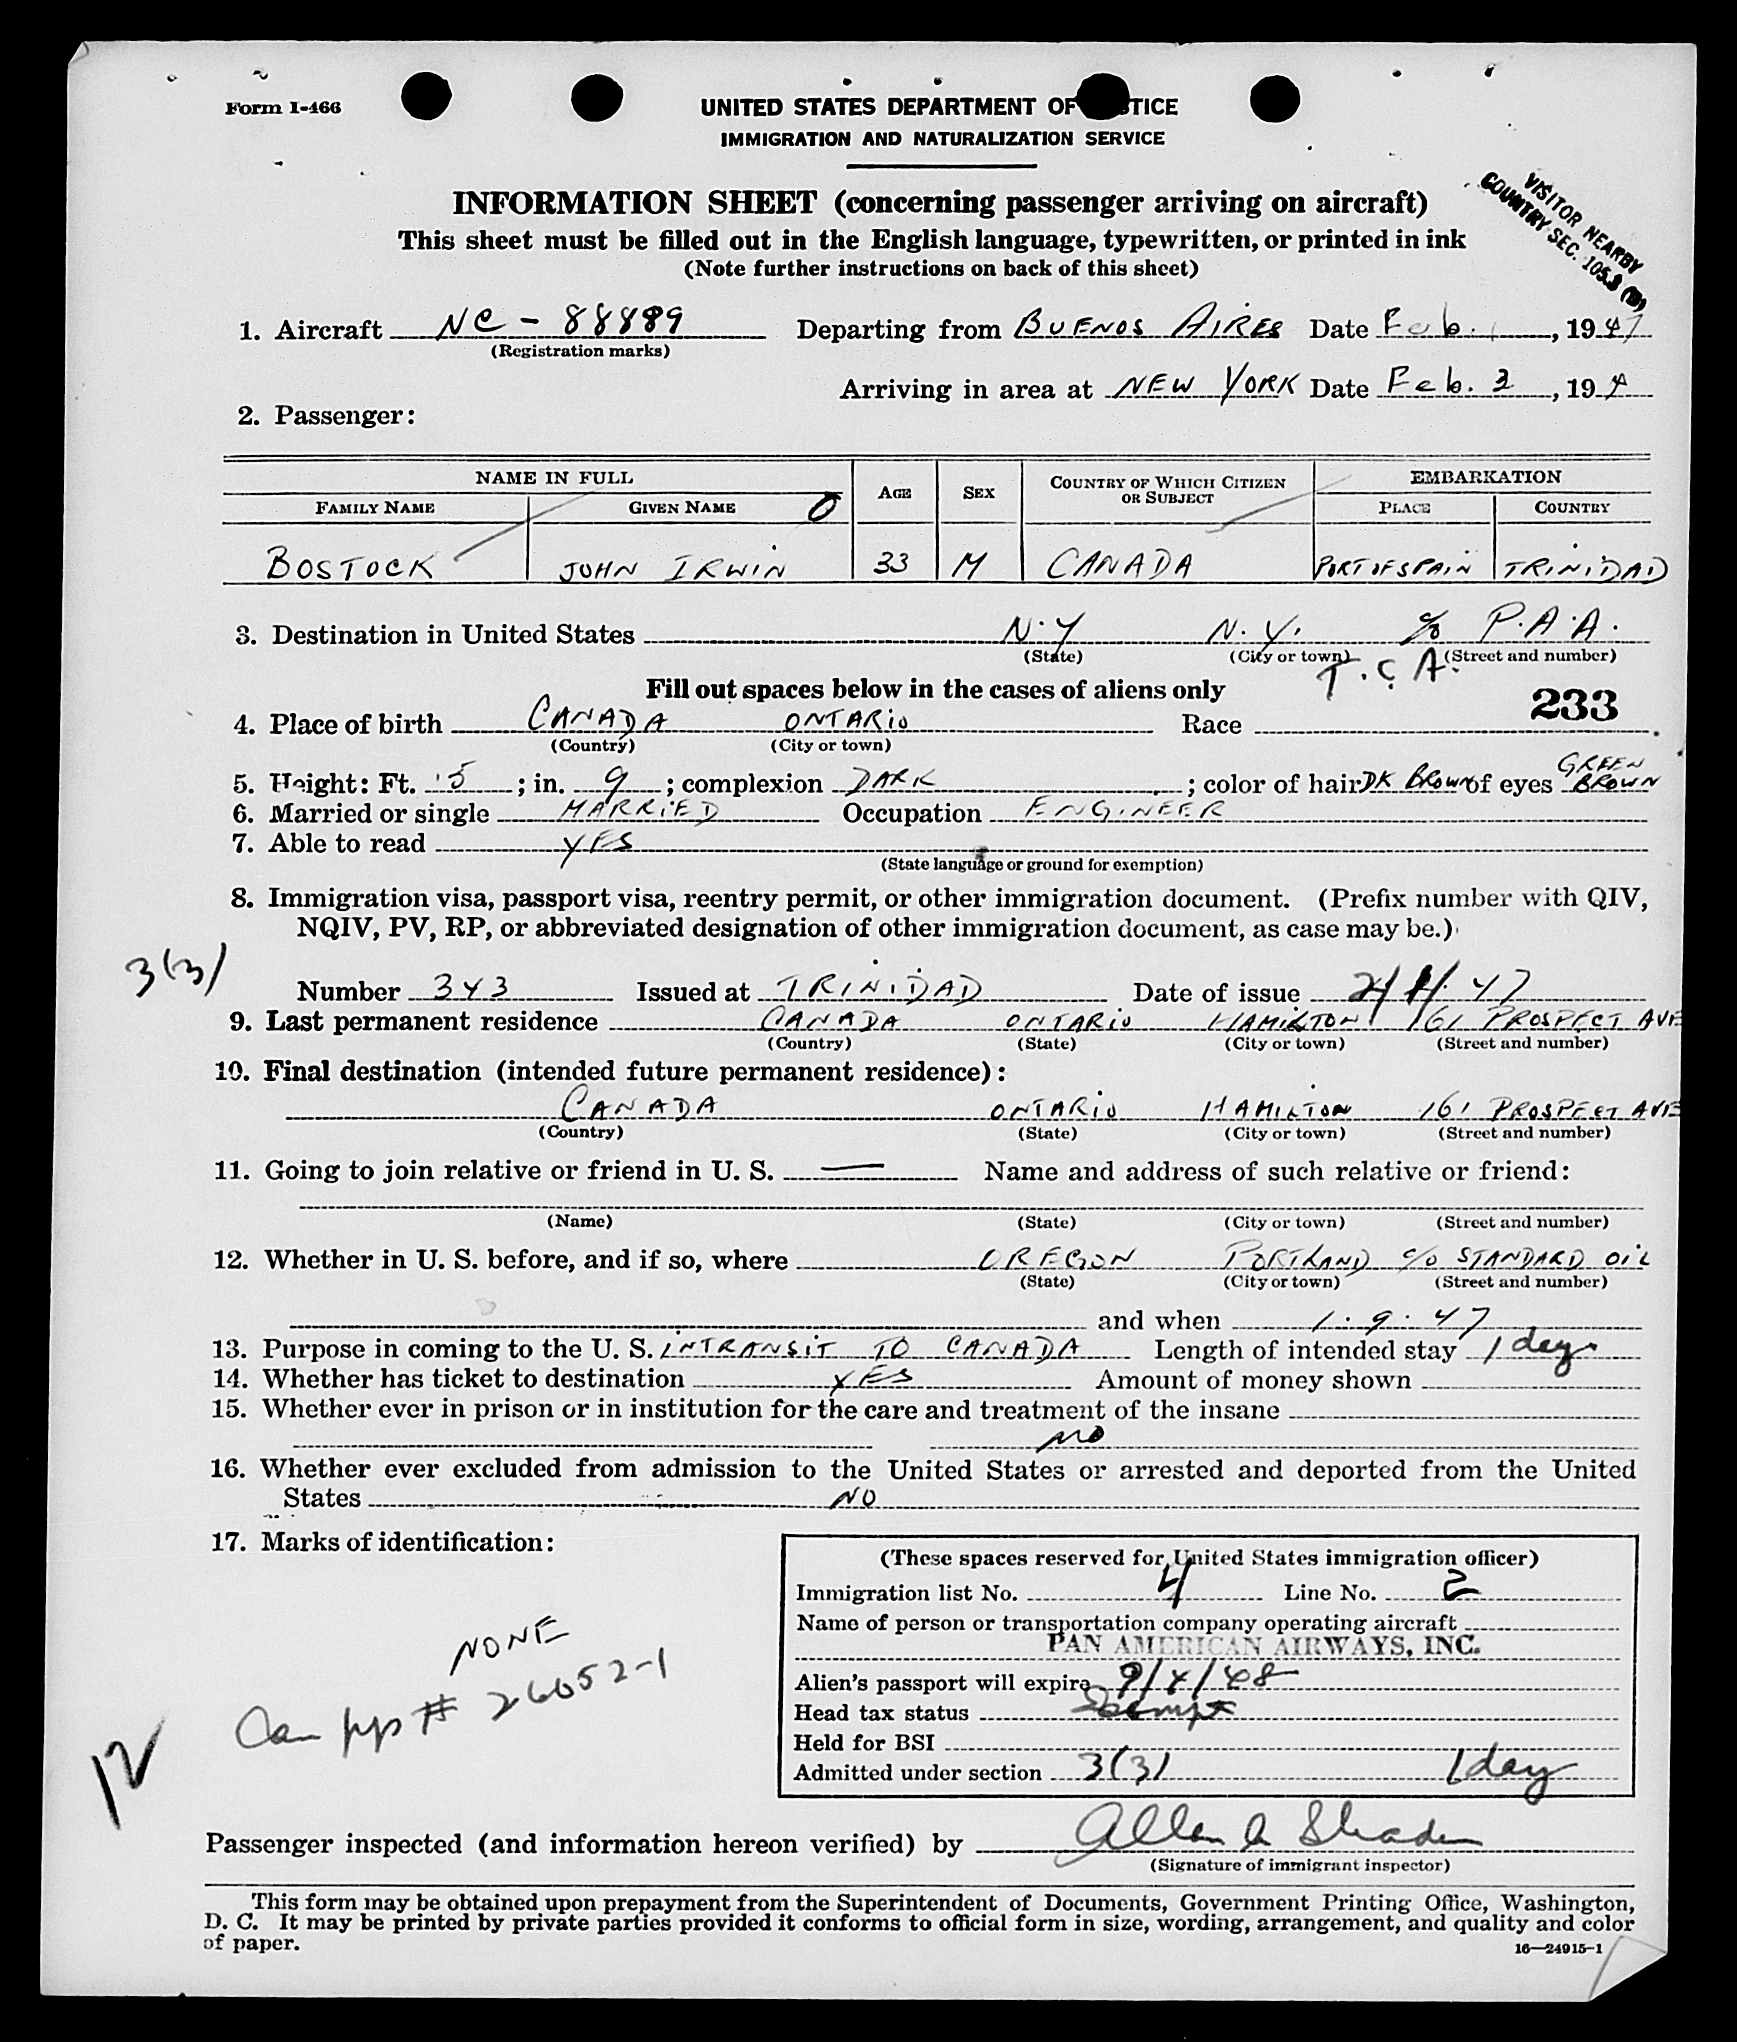 Form I-466
UNITED STATES DEPARTMENT OF JUSTICE
IMMIGRATION AND NATURALIZATION SERVICE
INFORMATION SHEET (concerning passenger arriving on aircraft)
This sheet must be filled out in the English language, typewritten, or printed in ink
(Note further instructions on back of this sheet)
VISITOR NEARBY
COUNTRY SEC. 105.3 (B)
1. Aircraft NC - 88889 Departing from BUENOS AIRES Date Feb. 1, 1947
(Registration marks)
Arriving in area at NEW YORK Date Feb. 2, 194
2. Passenger:
NAME IN FULL AGE SEX COUNTRY OF WHICH CITIZEN OR SUBJECT EMBARKATION
FAMILY NAME GIVEN NAME PLACE COUNTRY
BOSTOCK JOHN IRWIN 33 M CANADA PORT OF SPAIN TRINIDAD
3. Destination in United States N.Y N.Y. c/o P.A.A.
(State) (City or town) (Street and number)
T.C.A.
Fill out spaces below in the cases of aliens only
233
4. Place of birth CANADA ONTARIO Race
(Country) (City or town)
5. Height: Ft. 5; in. 9; complexion DARK; color of hair DK BROWN of eyes GREEN BROWN
6. Married or single MARRIED Occupation ENGINEER
7. Able to read YES
(State language or ground for exemption)
8. Immigration visa, passport visa, reentry permit, or other immigration document. (Prefix number with QIV,
NQIV, PV, RP, or abbreviated designation of other immigration document, as case may be.)
3(3)
Number 343 Issued at TRINIDAD Date of issue 47
9. Last permanent residence CANADA ONTARIO HAMILTON 161 PROSPECT AVE
(Country) (State) (City or town) (Street and number)
10. Final destination (intended future permanent residence):
CANADA ONTARIO HAMILTON 161 PROSPECT AVE
(Country) (State) (City or town) (Street and number)
11. Going to join relative or friend in U. S. — Name and address of such relative or friend:
(Name) (State) (City or town) (Street and number)
12. Whether in U. S. before, and if so, where OREGON PORTLAND c/o STANDARD OIL
(State) (City or town) (Street and number)
and when 1.9.47
13. Purpose in coming to the U. S. INTRANSIT TO CANADA Length of intended stay 1 day
14. Whether has ticket to destination YES Amount of money shown
15. Whether ever in prison or in institution for the care and treatment of the insane
NO
16. Whether ever excluded from admission to the United States or arrested and deported from the United
States NO
17. Marks of identification:
NONE
Can pp # 26052-1
12
(These spaces reserved for United States immigration officer)
Immigration list No. 4 Line No. 2
Name of person or transportation company operating aircraft
PAN AMERICAN AIRWAYS, INC.
Alien's passport will expire 9/4/48
Head tax status Exempt
Held for BSI
Admitted under section 3(3) 1 day
Passenger inspected (and information hereon verified) by
(Signature of immigrant inspector)
This form may be obtained upon prepayment from the Superintendent of Documents, Government Printing Office, Washington,
D. C. It may be printed by private parties provided it conforms to official form in size, wording, arrangement, and quality and color
of paper.
16—24915-1